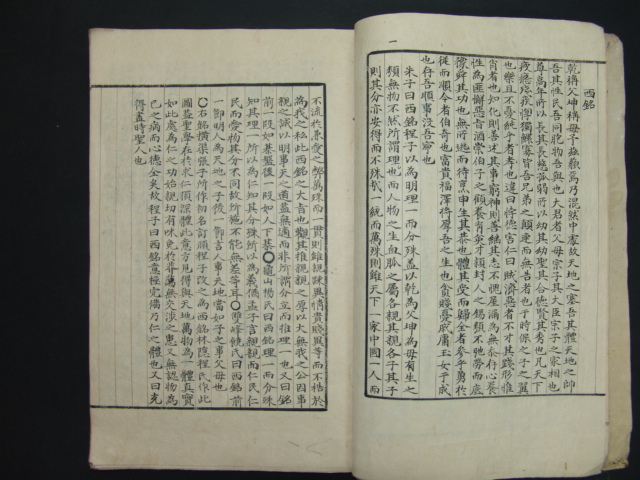 一
西銘
乾稱父坤稱母予玆藐焉乃混然中處故天地之塞吾其體天地之帥
吾其性民吾同胞物吾與也大君者吾父母宗子其大臣宗子之家相也
尊高年所以長其長慈孤弱所以幼吾幼聖其合德賢其秀也凡天下
疲癃殘疾惸獨鰥寡皆吾兄弟之顚連而無告者也于時保之子之翼
也樂且不憂純乎孝者也違曰悖德害仁曰賊濟惡者不才其踐形惟
肖者也知化則善述其事窮神則善繼其志不愧屋漏爲無忝存心養
性爲匪懈惡旨酒崇伯子之顧養育英才潁封人之錫類不弛勞而底
豫舜其功也無所逃而待烹申生其恭也體其受而歸全者參乎勇於
從而順令者伯奇也富貴福澤將厚吾之生也貧賤憂戚庸玉女于成
也存吾順事沒吾寧也
朱子曰西銘程子以爲明理一而分殊蓋以乾爲父坤爲母有生之
類無物不然所謂理一也而人物之生血脈之屬各親其親各子其子
則其分亦安得而不殊哉一統而萬殊則雖天下一家中國一人而
不流於兼愛之弊萬殊而一貫則雖親疎異情貴賤異等而不梏於
爲我之私此西銘之大旨也觀其推親親之厚以大無我之公因事
親之誠以明事天之道蓋無適而非所謂分立而推理一也又曰銘
前一段如棊盤後一段如人下棊○龜山楊氏曰西銘理一而分殊
知其理一所以爲仁知其分殊所以爲義猶孟子言親親而仁民仁
民而愛物其分不同故所施不能無差等耳○雙峰饒氏曰西銘前
一節明人爲天地之子後一節言人事天地當如子之事父母也
○右銘橫渠張子所作初名訂頑程子改之爲西銘林隱程氏作此
圖蓋聖學在於求仁須深體此意方見得與天地萬物爲一體眞實
如此處爲仁之功始親切有味免於莽蕩無交涉之患又無認物爲
己之病而心德全矣故程子曰西銘意極完備乃仁之體也又曰充
得盡時聖人也